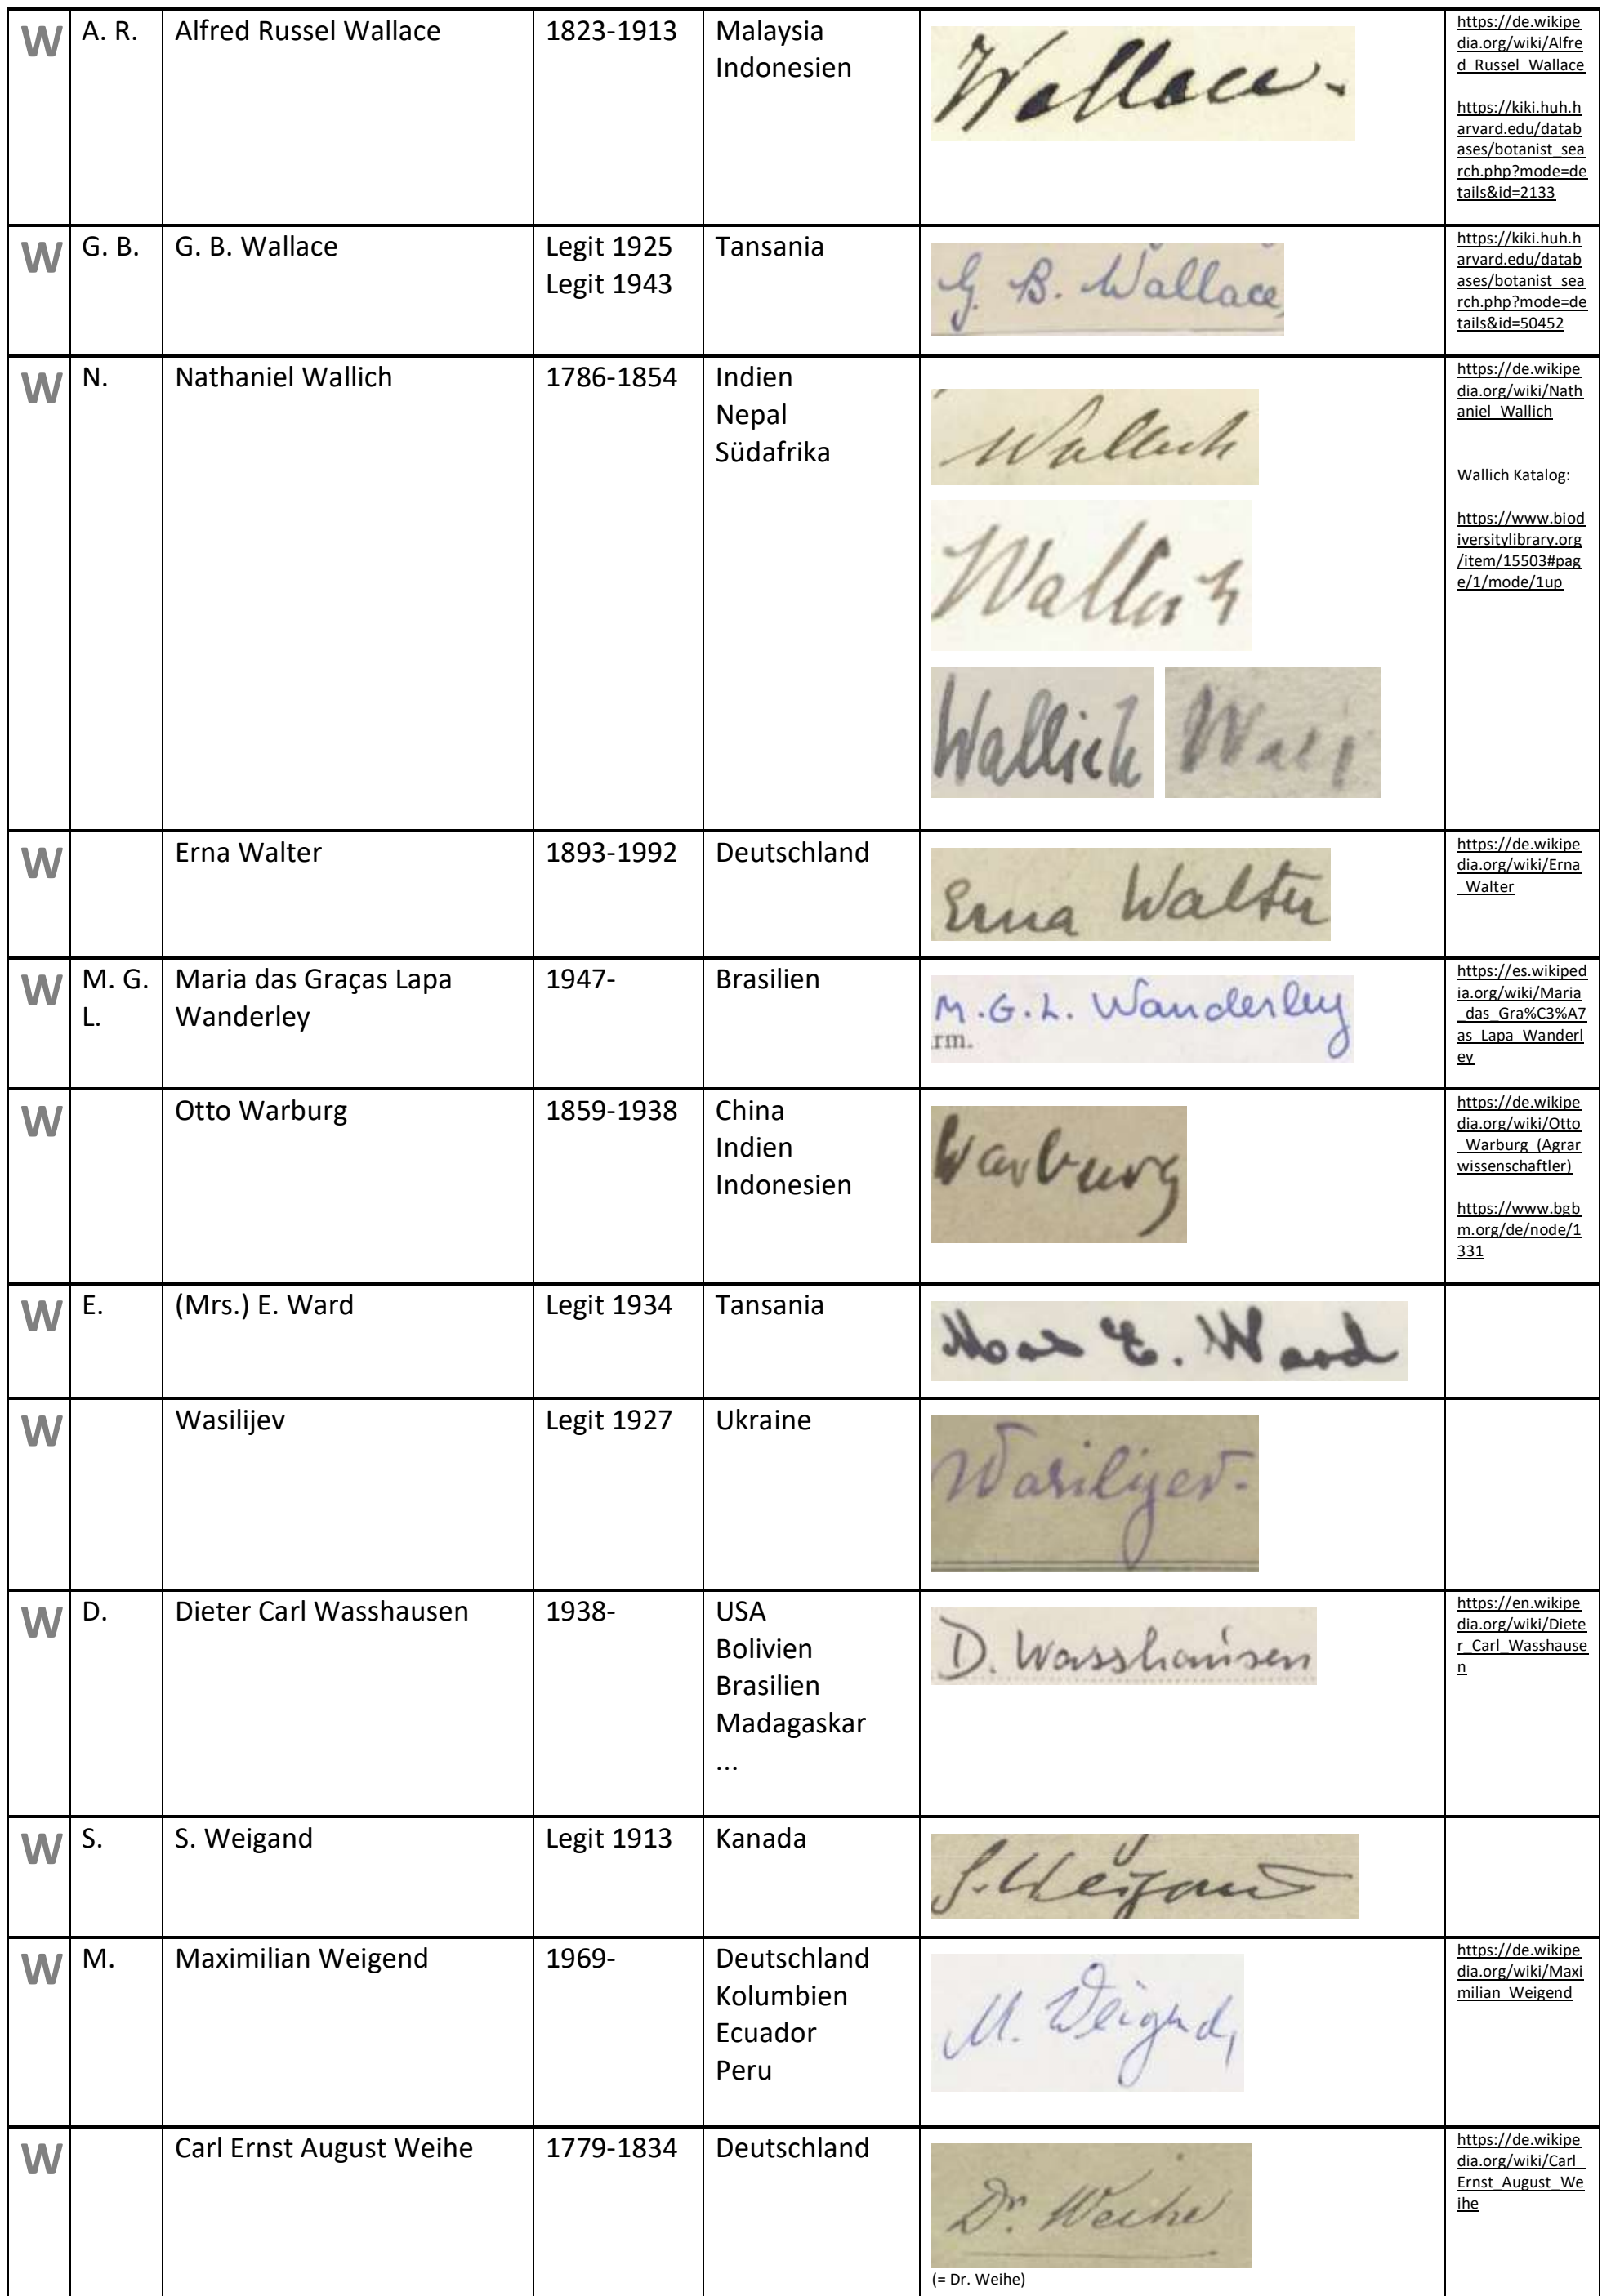 W
A. R.
Alfred Russel Wallace
1823-1913
Malaysia
Indonesien
Wallace.
https://de.wikipe
dia.org/wiki/Alfre
d_Russel_Wallace
https://kiki.huh.h
arvard.edu/datab
ases/botanist_sea
rch.php?mode=de
tails&id=2133
W
G. B.
G. B. Wallace
Legit 1925
Legit 1943
Tansania
G. B. Wallace,
https://kiki.huh.h
arvard.edu/datab
ases/botanist_sea
rch.php?mode=de
tails&id=50452
W
N.
Nathaniel Wallich
1786-1854
Indien
Nepal
Südafrika
Wallich
Wallich
Wallich
https://de.wikipe
dia.org/wiki/Nath
aniel_Wallich
Wallich Katalog:
https://www.biod
iversitylibrary.org
/item/15503#pag
e/1/mode/1up
W
Erna Walter
1893-1992
Deutschland
Erna Walter
https://de.wikipe
dia.org/wiki/Erna
_Walter
W
M. G.
L.
Maria das Graças Lapa
Wanderley
1947-
Brasilien
M.G.L. Wanderley
rm.
https://es.wikiped
ia.org/wiki/Maria
_das_Gra%C3%A7
as_Lapa_Wanderl
ey
W
Otto Warburg
1859-1938
China
Indien
Indonesien
Warburg
https://de.wikipe
dia.org/wiki/Otto
_Warburg_(Agrar
wissenschaftler)
https://www.bgb
m.org/de/node/1
331
W
E.
(Mrs.) E. Ward
Legit 1934
Tansania
E. Ward
W
Wasilijev
Legit 1927
Ukraine
Wasilijev.
W
D.
Dieter Carl Wasshausen
1938-
USA
Bolivien
Brasilien
Madagaskar
...
D. Wasshausen
https://en.wikipe
dia.org/wiki/Diete
r_Carl_Wasshause
n
W
S.
S. Weigand
Legit 1913
Kanada
S. Weigand
W
M.
Maximilian Weigend
1969-
Deutschland
Kolumbien
Ecuador
Peru
M. Weigend,
https://de.wikipe
dia.org/wiki/Maxi
milian_Weigend
W
Carl Ernst August Weihe
1779-1834
Deutschland
Dr. Weihe
(= Dr. Weihe)
https://de.wikipe
dia.org/wiki/Carl_
Ernst_August_We
ihe